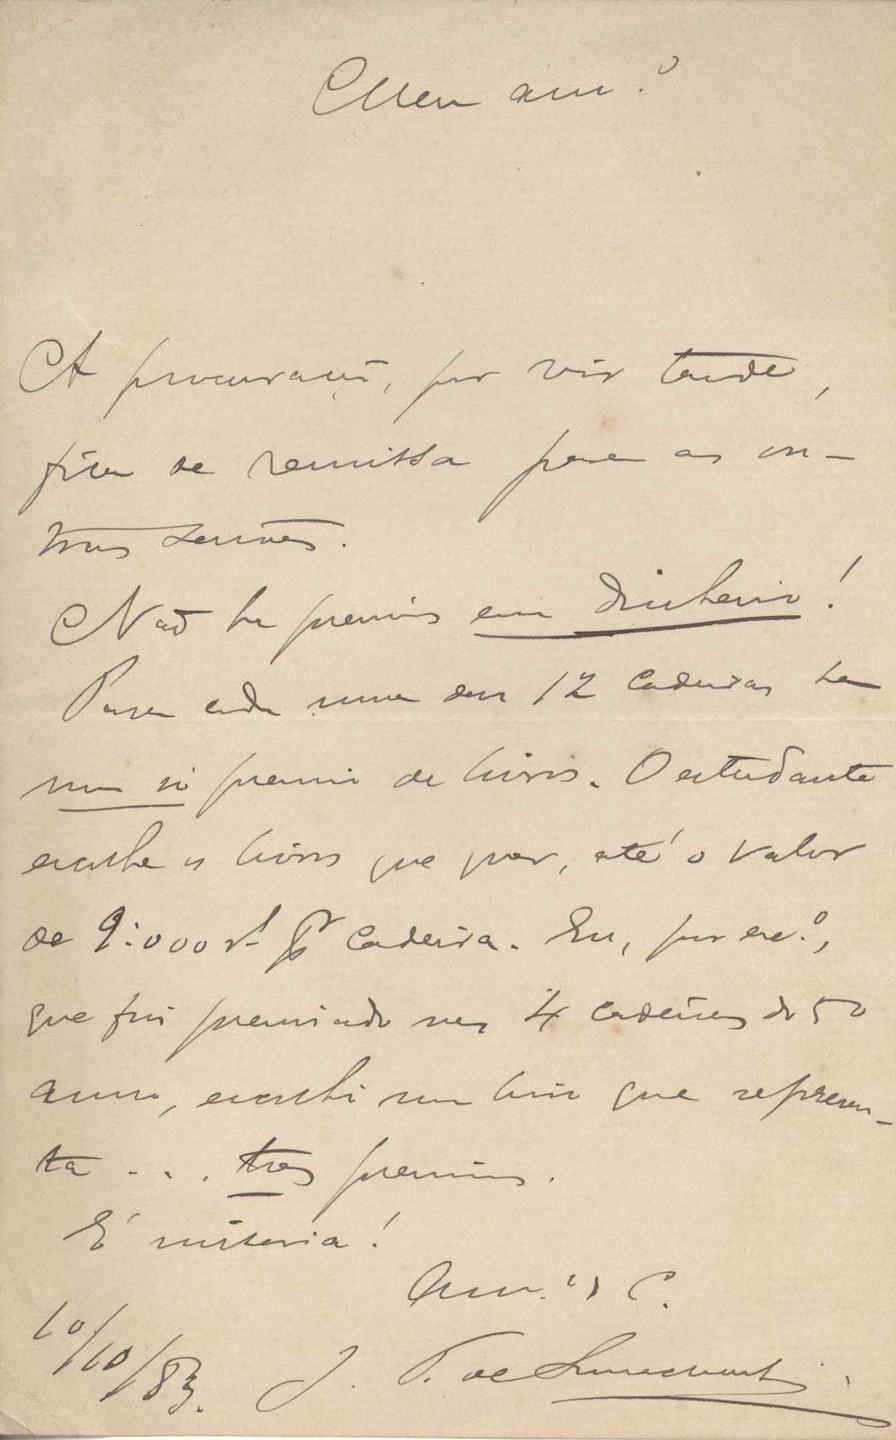 Meu am.º
A procuração, por vir tarde,
fica de remissa para as ou-
tras sessões.
Não ha premios em dinheiro!
Para cada uma das 12 cadeiras ha
um só premio de livros. O estudante
escolhe os livros que quer, até o valor
de 9:000 rs. pr cadeira. Eu, por ex.º,
que fui premiado nas 4 cadeiras do 5º
anno, escolhi um livro que represen-
ta . . . tres premios.
É miseria!
Am.º e C.
10/10/83. J. T. de